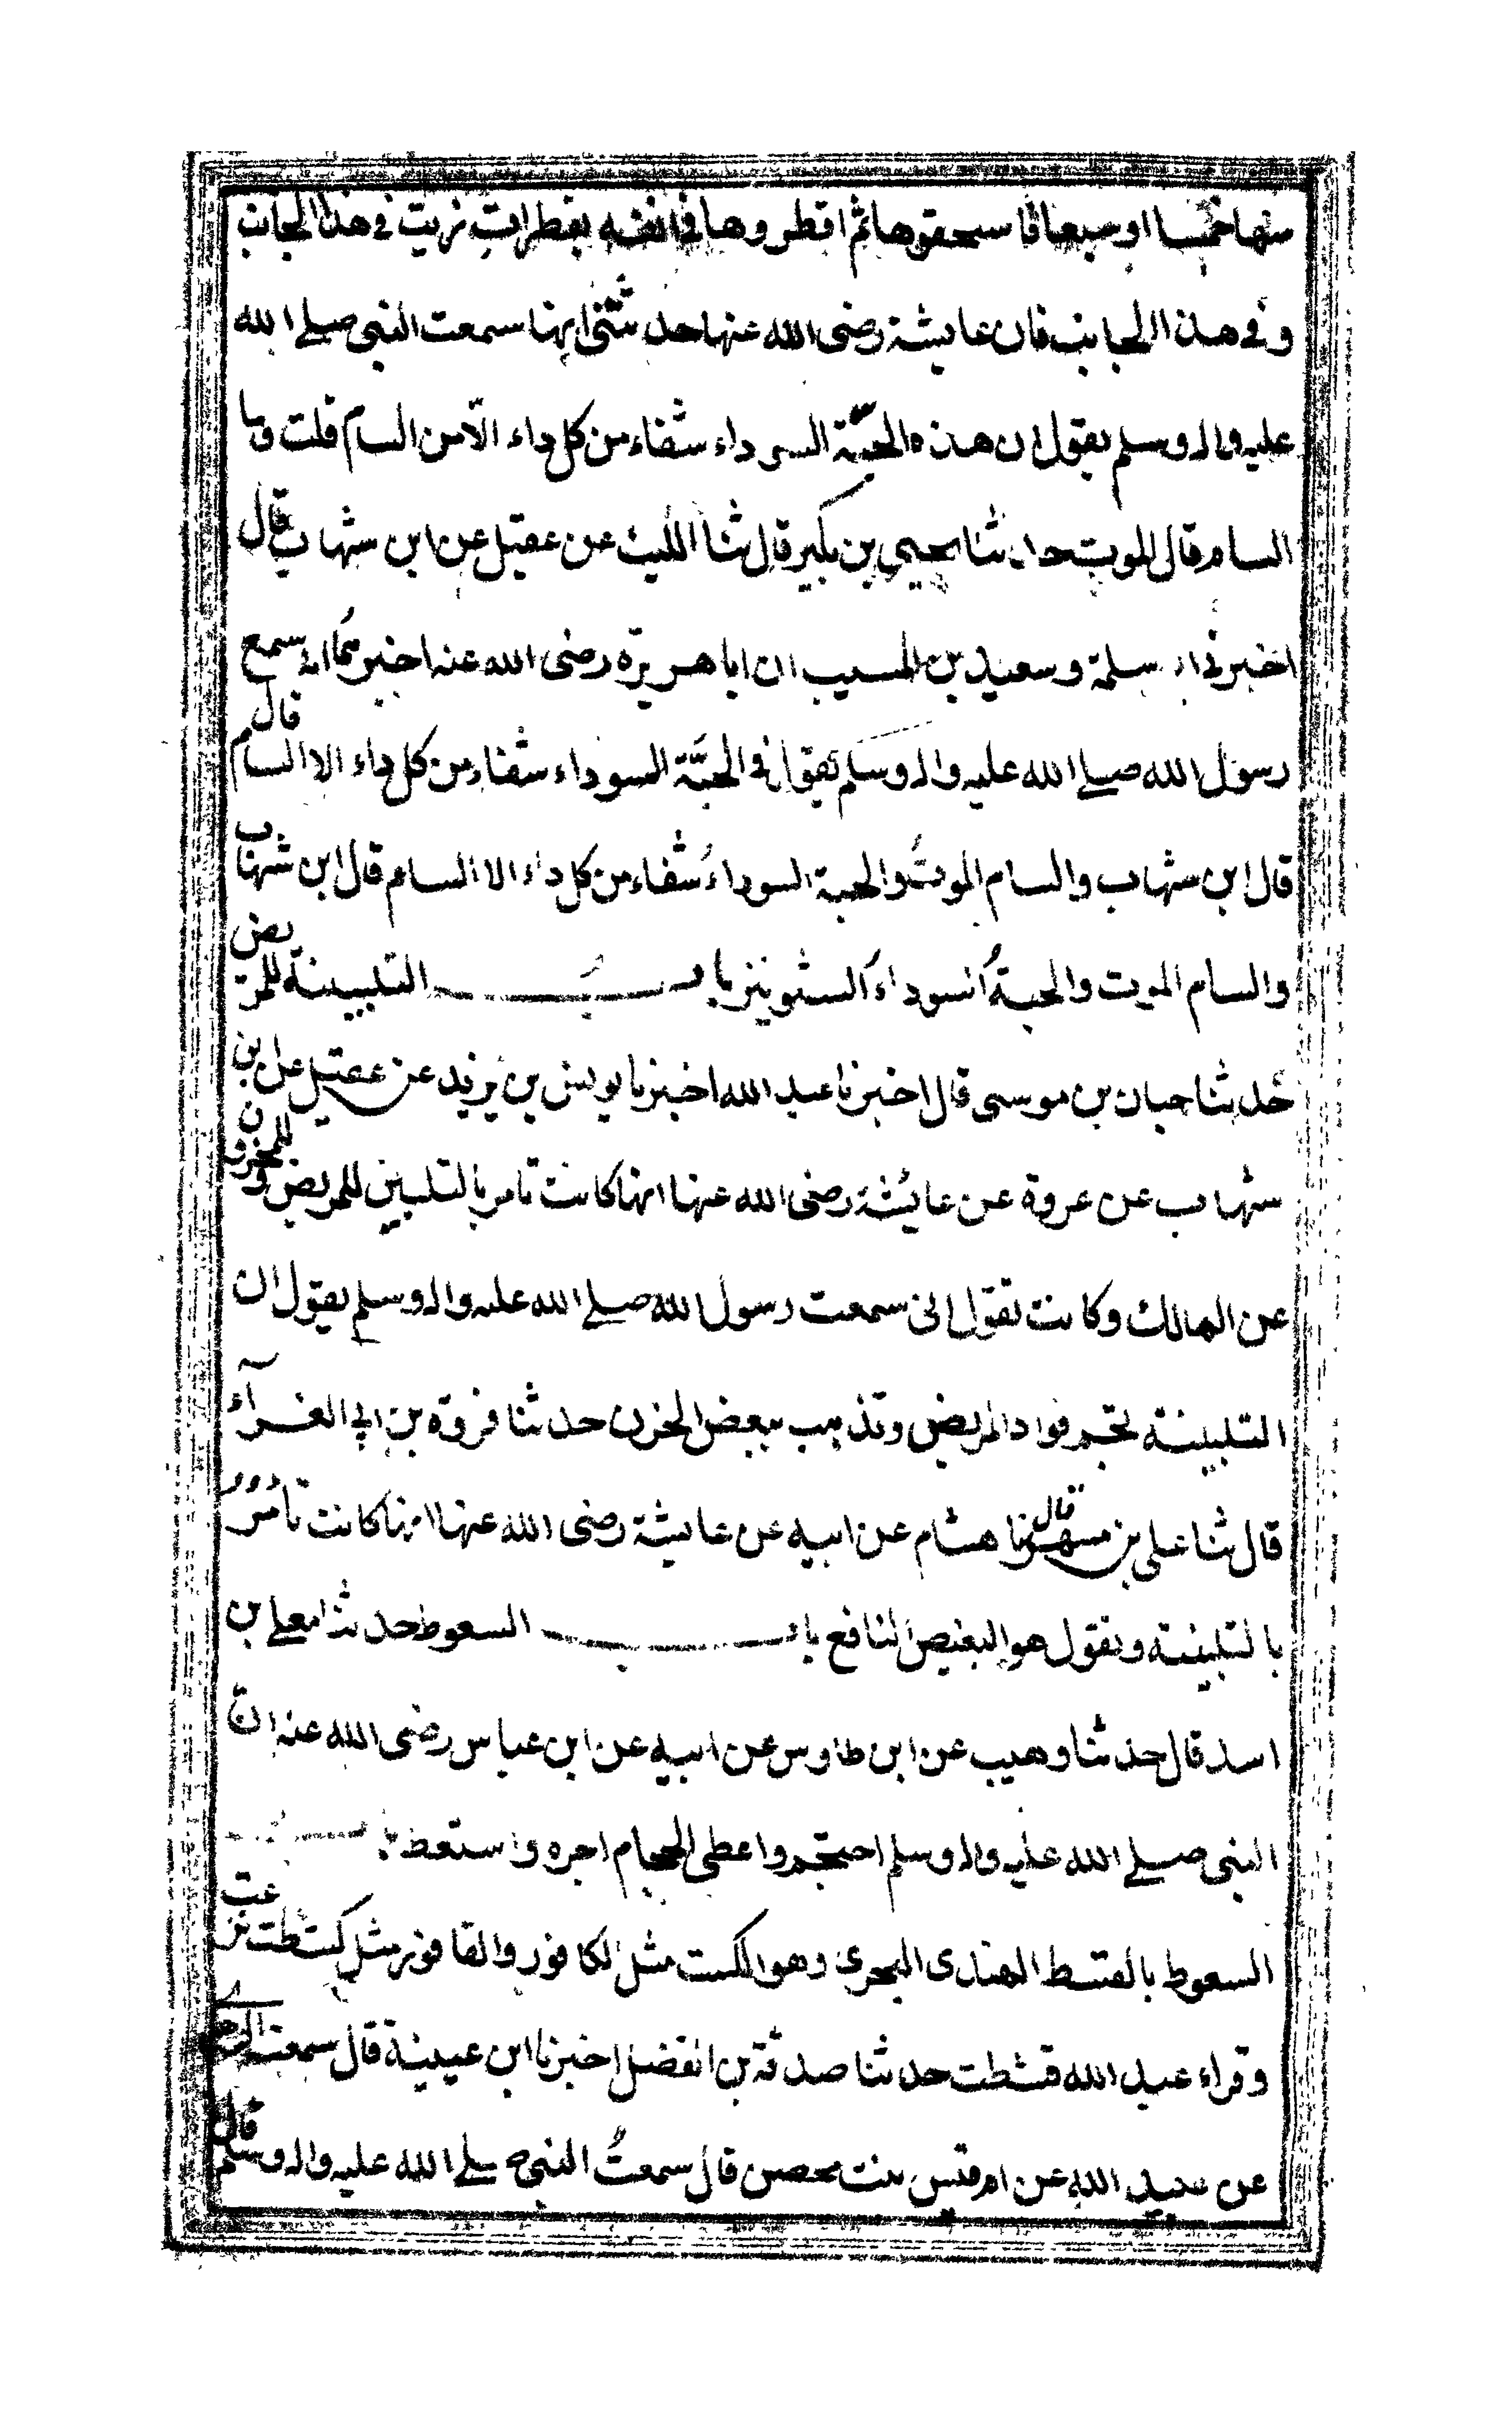 منها خمسا او سبعا فاسحقوها ثم اقطروها في انفه بقطرات زيت في هذا الجانب
وفي هذا الجانب فان عايشة رضى الله عنها حدثتنى انها سمعت النبى صلى الله
عليه واله وسلم يقول ان هذه الحبة السوداء شفاء من كل داء الا من السام قلت وما
السام قال الموت حدثنا يحيى بن بكير قال ثنا الليث عن عقيل عن ابن شهاب قال
اخبرنى ابو سلمة وسعيد بن المسيب ان ابا هريرة رضى الله عنه اخبرهما انه سمع
رسول الله صلى الله عليه واله وسلم يقول في الحبة السوداء شفاء من كل داء الا السام قال
قال ابن شهاب والسام الموت والحبة السوداء شفاء من كل داء الا السام قال ابن شهاب
والسام الموت والحبة السوداء الشونيز باب التلبينة للمريض
حدثنا حبان بن موسى قال اخبرنا عبد الله اخبرنا يونس بن يزيد عن عقيل عن ابن
شهاب عن عروة عن عايشة رضى الله عنها انها كانت تامر بالتلبين للمريض وللمحزون
عن الهالك وكانت تقول انى سمعت رسول الله صلى الله عليه واله وسلم يقول ان
التلبينة تجم فواد المريض وتذهب ببعض الحزن حدثنا فروة بن ابي الغرآء
قال ثنا على بن مسهر قال نا هشام عن ابيه عن عايشة رضى الله عنها انها كانت تامر
بالتلبينة وتقول هو البغيض النافع باب السعوط حدثنا معلى بن
اسد قال حدثنا وهيب عن ابن طاوس عن ابيه عن ابن عباس رضى الله عنه ان
النبى صلى الله عليه واله وسلم احتجم واعطى الحجام اجره واستعط باب
السعوط بالقسط الهندى البحرى وهو الكست مثل الكافور والقافور مثل كشطت نزعت
وقراء عبد الله قشطت حدثنا صدقة بن الفضل اخبرنا ابن عيينة قال سمعت الزهرى
عن عبيد الله عن ام قيس بنت محصن قال سمعت النبى صلى الله عليه واله وسلم قال